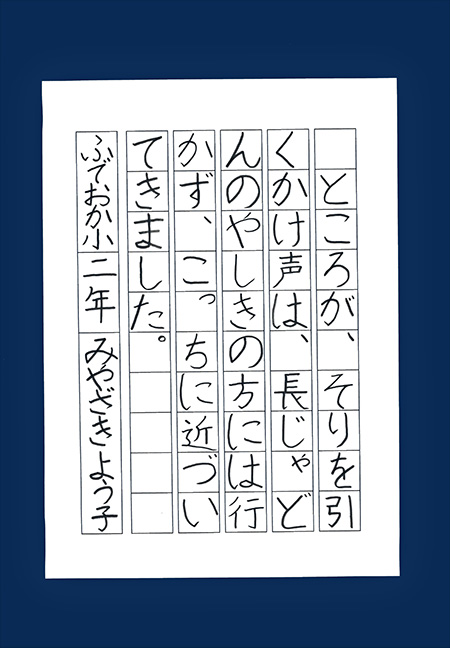 ところが、そりを引
くかけ声は、長じゃど
んのやしきの方には行
かず、こっちに近づい
てきました。
ふでおか小二年みやざきよう子